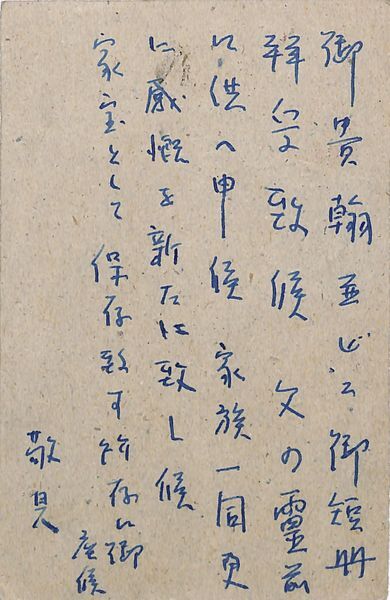 御貴翰並びに御短冊
拝受致候 父の靈前
に供へ申候 家族一同更
に感慨を新たに致し候
家宝として保存致す所存に御
座候
敬具